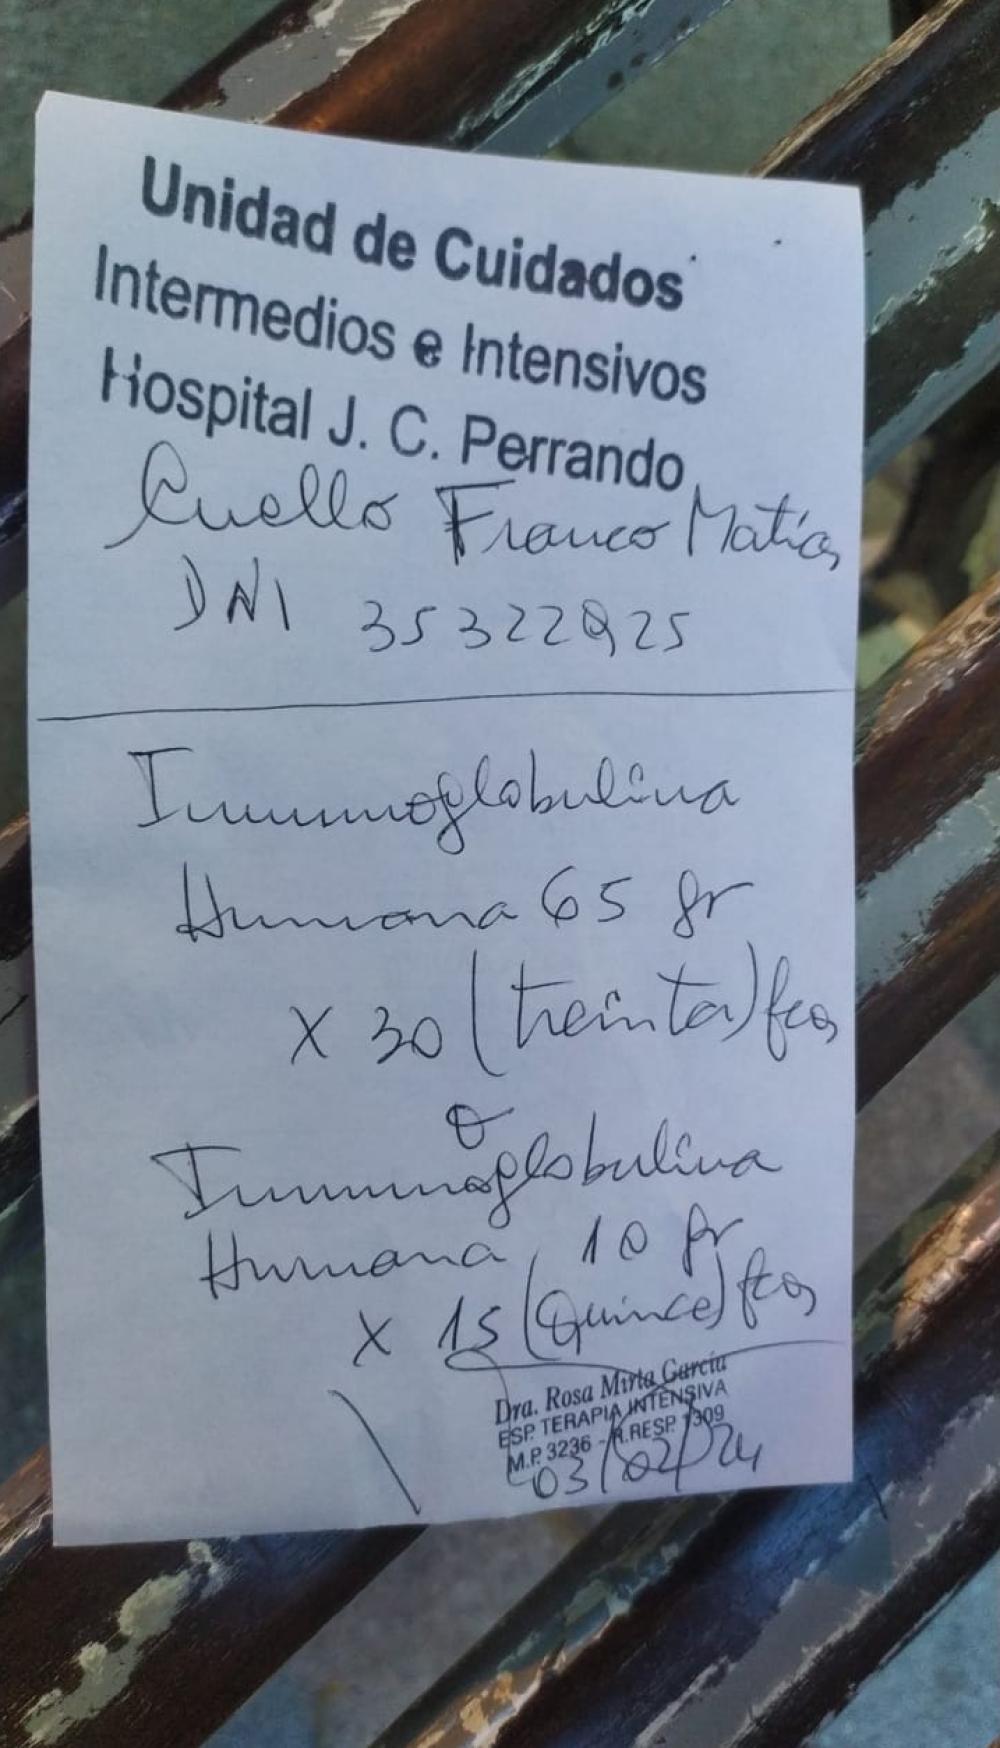 Unidad de Cuidados
Intermedios e Intensivos
Hospital J. C. Perrando
Cuello Franco Matías
DNI 35322925
Inmunoglobulina
Humana 65 gr
X 30 (treinta) fcos
o
Inmunoglobulina
Humana 10 gr
X 15 (Quince) fcos
Dra. Rosa Mirta García
ESP. TERAPIA INTENSIVA
M.P. 3236 - R.RESP. 1309
03/02/24